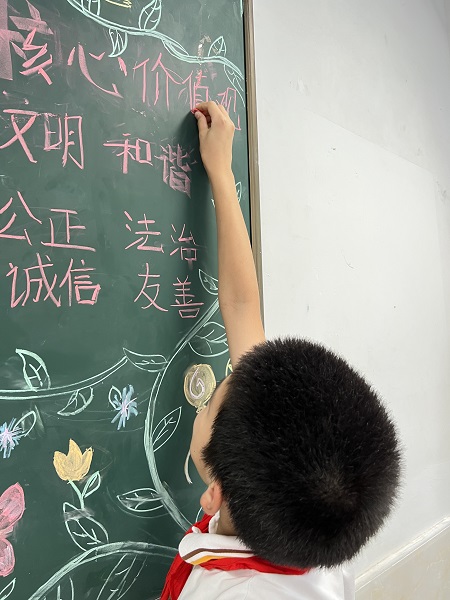 核心价值观
文明 和谐
公正 法治
诚信 友善